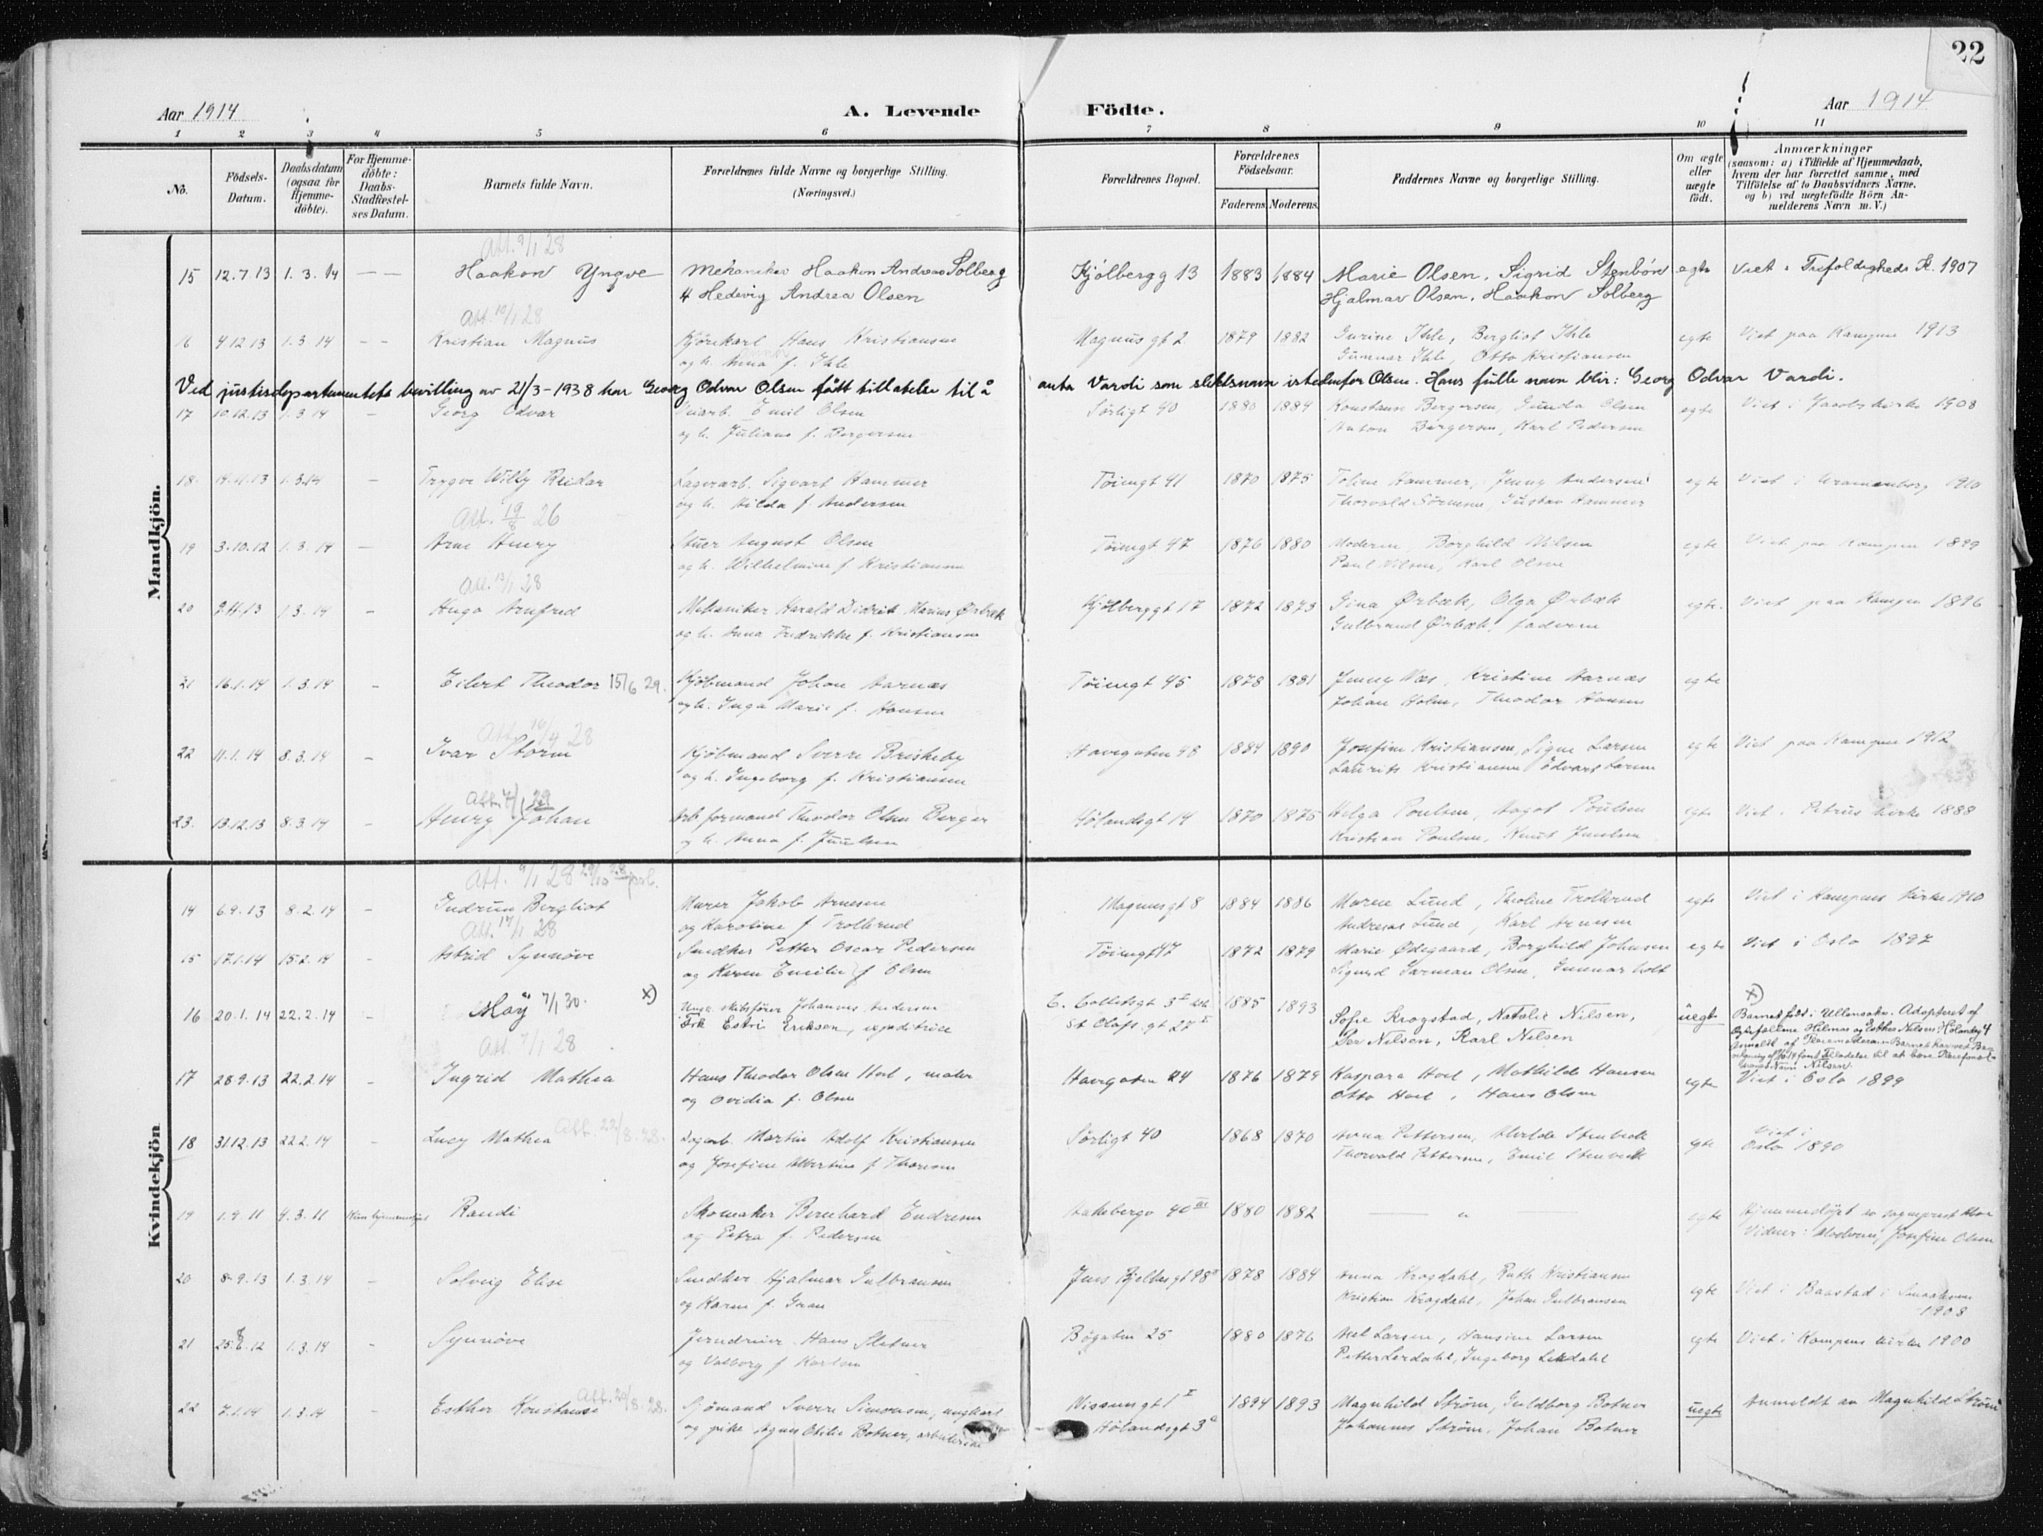 22
Aar 1914 A. Levende Födte. Aar 1914
1 2 3 4 5 6 7 8 9 10 11
No. Födsels-Datum. Daabsdatum (ogsaa for Hjemme-döbte). For Hjemme-döbte: Daabs-Stadfæstel-ses Datum. Barnets fulde Navn. Forældrenes fulde Navne og borgerlige Stilling. (Næringsvei.) Forældrenes Bopæl. Forældrenes Födselsaar. Faderens. Moderens. Faddernes Navne og borgerlige Stilling. Om ægte eller uægte födt. Anmærkninger (saasom: a) i Tilfælde af Hjemmedaab, hvem der har forrettet samme, med Tilföielse af to Daabsvidners Navne, og b) ved uægtefödte Börn Anmelderens Navn m. V.)
Mandkjön.
Att. 9/1 28
15 12.7.13 1.3.14 — — Haakon Yngve Mekaniker Haakon Andreas Solberg Kjølbergg 13 1883 1884 Marie Olsen, Sigrid Stenbön egte Viet i Trefoldigheds K. 1907
H Hedevig Andrea Olsen Hjalmar Olsen, Haakon Solberg
Att. 10/1 28
16 4.12.13 1.3.14 — — Kristian Magnus Kjørekarl Hans Kristiansen Magnus gt 2 1879 1882 Gurine Ihle, Bergliot Ihle egte Viet paa Kampen 1913
og h. Anna f. Ihle Gunnar Ihle, Otto Kristiansen
Ved justisdepartementets bevilling av 21/3-1938 har Georg Odvar Olsen fått tillatelse til å anta Vardi som slektsnavn istedenfor Olsen. Hans fulle navn blir: Georg Odvar Vardi.
17 10.12.13 1.3.14 — Georg Odvar Emil Olsen Sørligt 40 1880 1884 Konstanse Bergersen, Gunda Olsen egte Viet i Jacobs kirke 1908
og h. Juliane f. Bergersen Anton Bergersen, Karl Pedersen
18 14.11.13 1.3.14 — Trygve Willy Reidar Lagerarb. Sigvart Hammer Tøiengt 41 1870 1875 Toline Hammer, Jenny Andersen egte Viet i Uranienborg 1910
og h. Hilda f Andersen Thorvald Sörensen, Gustav Hammer
Att. 19/8 26
19 3.10.12 1.3.14 — Arne Henry Stuer August Olsen Tøiengt 47 1876 1880 Moderen, Borghild Nilsen egte Viet paa Kampen 1899
og h. Wilhelmine f Kristiansen Paul Nilsen, Karl Olsen
Att. 13/1 28
20 9.11.13 1.3.14 - Hugo Arnfred Mekaniker Harald Didrik Marius Ørbæk Kjølberggt 17 1872 1873 Gina Ørbæk, Olga Ørbæk egte. Viet paa Kampen 1896
og h. Anna Fredrikke f. Kristiansen Gulbrand Ørbæk, faderen
21 16.1.14 1.3.14 - Eilert Theodor 15/6 29. Kjøbmand Johan Aarnæs Tøiengt 45 1878 1881 Jenny Næs, Kristine Aarnæs egte
og h. Inga Marie f. Hansen Johan Holm, Theodor Hansen
Att. 16/4 28
22 11.1.14 8.3.14 - Ivar Storm Kjøbmand Sverre Briskeby Havegaten 48 1884 1890 Josefine Kristiansen, Signe Larsen egte Viet paa Kampen 1912
og h. Ingeborg f. Kristiansen Laurits Kristiansen, Edvart Larsen
Att. 7/1 29
23. 13.12.13 8.3.14 - Henry Johan Arb.formand Theodor Olsen Berger Hølandsgt 14 1870 1875 Helga Poulsen, Aagot Poulsen egte Viet i Petrus kirke 1888
og h. Anna f. Juulsen Kristian Poulsen, Knut Juulsen
Kvindekjön
Att. 9/1 28
14 6.9.13 8.2.14 - Gudrun Bergliot Murer Jakob Arnesen Magnusgt 8 1884 1886 Maren Lund, Tholine Trollerud egte Viet i Kampens kirke 1910
og Karoline f Trollerud Andreas Lund, Karl Arnesen
Att. 17/1 28
15 17.1.14 15.2.14 - Astrid Synnøve Snedker Petter Oscar Pedersen Tøiengt 17 1872 1879 Marie Ødegaard, Borghild Johnsen egte Viet i Oslo 1897
og Karen Emilie f Olsen Sigurd Garman Olsen, Gunnar Holt
16 20.1.14 22.2.14 - May 7/1 30. x) Ungk. skibsfører Johannes Andersen C. Colletsgt 3 1885 1893 Sofie Krogstad, Natalie Nilsen, uegte x) Barnet født i Ullensaker. Adopteret af
Frk Estri Eriksen, expeditrice St Olafs gt 27 Per Nilsen, Karl Nilsen Ægtefællene Hilmar og Esther Nilsen Hølandsg 4
Anmeldt af Pleiemoderen. Barnet har ved
Tilladelse til at bære
Navn Nilsen.
Att. 7/1 28
17 28.9.13 22.2.14 - Ingrid Mathea Hans Theodor Olsen Hoel, maler Havegaten 24 1876 1879 Kaspara Hoel, Mathilde Hansen egte Viet i Oslo 1899
og Ovidia f. Olsen Otto Hoel, Hans Olsen
18 31.12.13 22.2.14 - Lucy Mathea Att. 22/8.28. Martin Adolf Kristiansen Sørligt 40 1868 1870 Anna Pettersen, Alvilde Stenbeck egte Viet i Oslo 1890
og Josefine Albertine f Thoresen Thorvald Pettersen, Emil Stenbeck
19 1.9.11 9.3.11 Randi Skomaker Bernhard Endresen Aakebergv 40 III 1880 1882 — " egte Hjemmedøpt av sogneprest
og Petra f. Pedersen Vidner: Josefine Olsen
20 8.9.13 1.3.14 - Solveig Elise Snedker Hjalmar Gulbransen Jens Bjelkesgt 98 1878 1884 Anna Krogdahl, Ruth Kristiansen egte Viet i Baastad i Smaalenene
og Karen f. Gran Kristian Krogdahl, Johan Gulbransen 1908
21 25.8.12 1.3.14 - Synnøve Jerndreier Hans Sletner Bøgaten 25 1880 1876 Larsen, Hansine Larsen egte Viet i Kampens kirke 1900
og Valborg f Karlsen Petter Lerdahl, Ingeborg Lerdahl
22 7.1.14 1.3.14 - Esther Konstanse Att. 20/8.28. Sjømand Sverre Simonsen, ungkarl Nissengt 1 I 1894 1893 Magnhild Strøm, Guldborg Botner uegte Anmeldt av Magnhild Strøm
og pike Agnes Otilie Botner, arbeiderske Hølandsgt 3 Johannes Strøm, Johan Botner